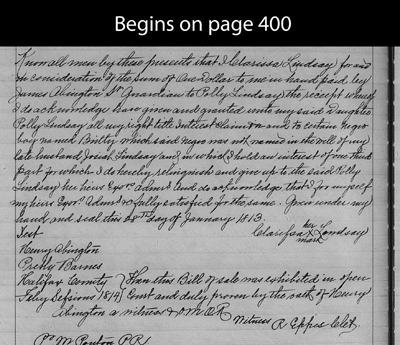 Begins on page 400
Know all men by these presents that I Clarissa Lindsay for and
in consideration of the sum of One Dollar to me in hand paid by
James Abington Sr Guardian to Polly Lindsay the receipt whereof
I do acknowledge have given and granted unto my said Daughter
Polly Lindsay all my right title Interest & claim to and to certain negro
boy named Billy which said negro was not named in the will of my
late husband Josiah Lindsay and in which I hold an interest of one third
part for which I do hereby relinquish and give up to the said Polly
Lindsay her heirs Exrs Admrs And do acknowledge that I for myself
my heirs Exrs Admrs fully satisfied for the same. Given under my
hand and seal this 8th day of January 1813.
Test
her
Clarissa x Lindsay
mark
Henry Abington
Presly Barnes
Halifax County } Then this Bill of sale was exhibited in open
Feby Sessions 1814 } Court and duly proven by the oath of Henry
Abington a witness & O M O R
Witness R Eppes Clk
Po M Pouton P R